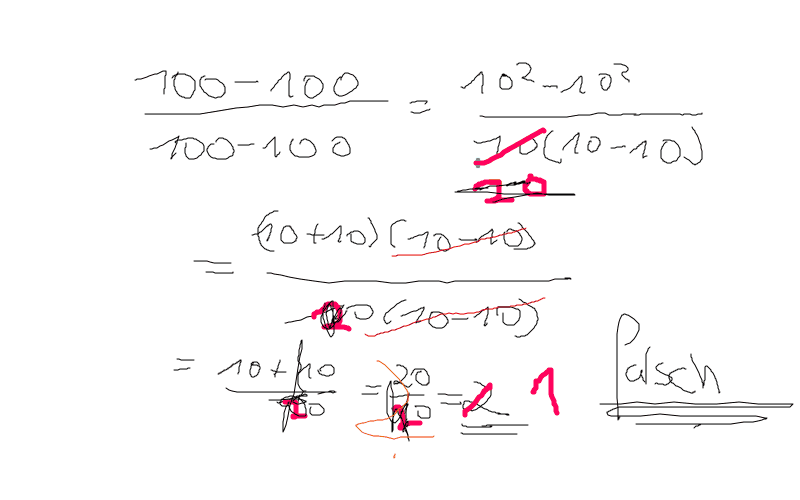 100 - 100 / 100 - 100 = 10² - 10² / 10(10 - 10)
20
= (10 + 10)(10 - 10) / 20(10 - 10)
= 10 + 10 / 20 = 20 / 20 = 2 1
Falsch